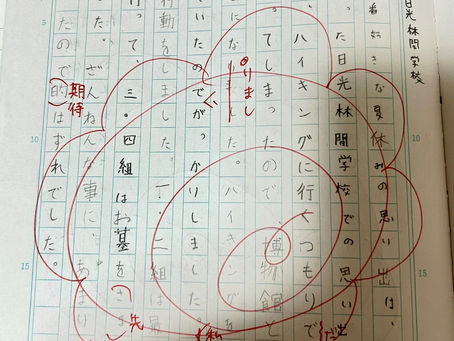 日光林間学校
番好きな夏休みの思い出は、
った日光林間学校での思い出
ハイキングに行くつもりで
だ
てしまったので、博物館と
りまし
になりました。ハイキングを
ていたのでがっかりしました。
私
行動をしました。一、二組は
行って、三・四組はお墓をさ
先
た。ざんねんな事に、あまり
期待
たので的はずれでした。
5
10
15
10
15